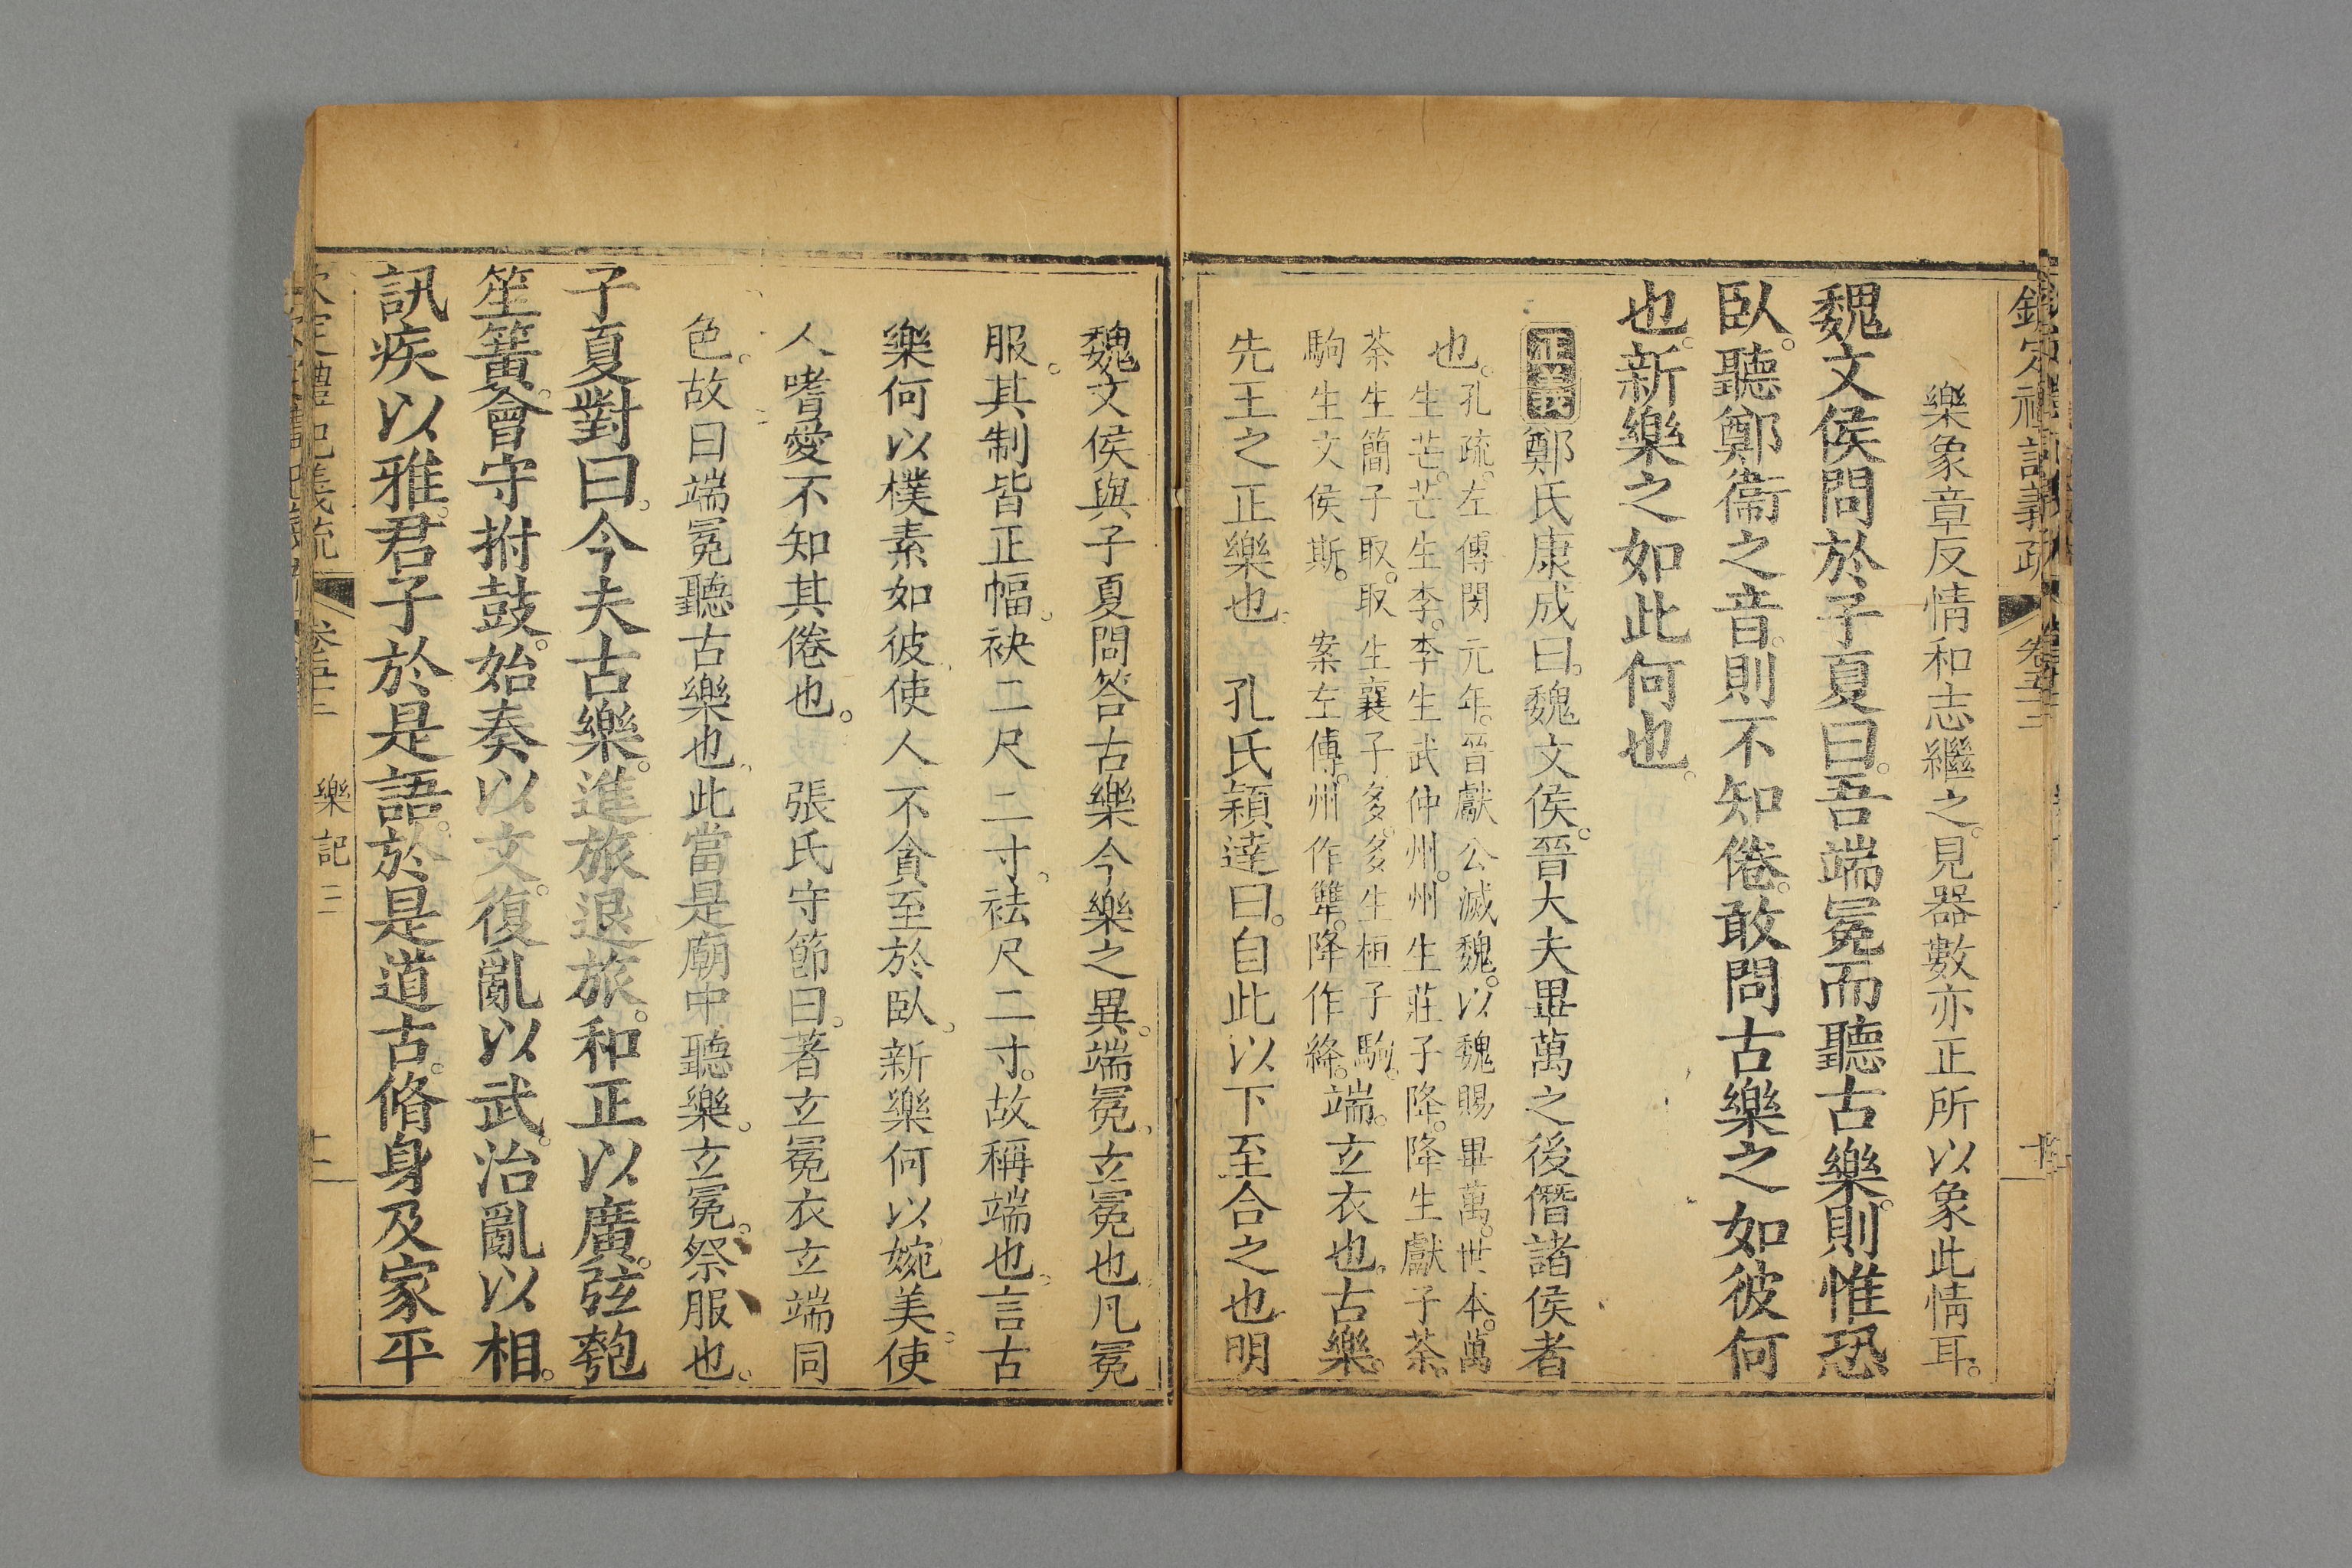 樂象章反情和志繼之見器數亦正所以象此情耳。
魏文侯問於子夏曰。吾端冕而聽古樂。則惟恐
臥。聽鄭衞之音。則不知倦。敢問古樂之如彼何
也。新樂之如此何也。
正義 鄭氏康成曰。魏文侯。晉大夫畢萬之後僭諸侯者
也。孔疏。左傳閔元年。晉獻公滅魏。以魏賜畢萬。世本。萬
生芒。芒生季。季生武仲州。州生莊子降。降生獻子荼。
荼生簡子取。取生襄子多。多生桓子駒。
駒生文侯斯。 案左傳。州作犨。降作絳。端。玄衣也。古樂。
先王之正樂也。 孔氏穎達曰。自此以下至合之也。明
魏文侯與子夏問答古樂今樂之異。端冕。玄冕也。凡冕
服。其制皆正幅。袂二尺二寸。袪尺二寸。故稱端也。言古
樂何以樸素如彼。使人不貪至於臥。新樂何以婉美。使
人嗜愛不知其倦也。 張氏守節曰。著玄冕衣玄端同
色。故曰端冕聽古樂也。此當是廟中聽樂。玄冕。祭服也。
子夏對曰。今夫古樂。進旅退旅。和正以廣。弦匏
笙簧。會守拊鼓。始奏以文。復亂以武。治亂以相。
訊疾以雅。君子於是語。於是道古。脩身及家平
樂記三